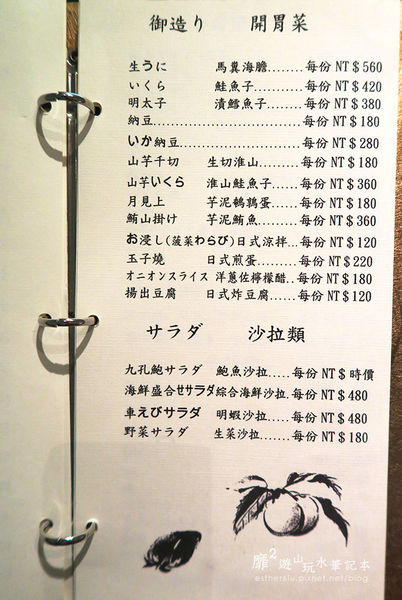 御造り 開胃菜
生うに 馬糞海膽........每份 NT＄560
いくら 鮭魚子..........每份 NT＄420
明太子 漬鱈魚子.......每份 NT＄380
納豆..................................每份 NT＄180
いか納豆.........................每份 NT＄280
山芋千切 生切淮山........每份 NT＄180
山芋いくら 淮山鮭魚子......每份 NT＄360
月見上 芋泥鵪鶉蛋......每份 NT＄180
鮪山掛け 芋泥鮪魚........每份 NT＄360
お浸し(菠菜わらび)日式涼拌...每份 NT＄120
玉子燒 日式煎蛋.........每份 NT＄220
オニオンスライス 洋蔥佐檸檬醋..每份 NT＄180
揚出豆腐 日式炸豆腐......每份 NT＄120
サラダ 沙拉類
九孔鮑サラダ 鮑魚沙拉.....每份 NT＄時價
海鮮盛合せサラダ綜合海鮮沙拉.每份 NT＄480
車えびサラダ 明蝦沙拉.....每份 NT＄480
野菜サラダ 生菜沙拉.......每份 NT＄180
靡2遊山玩水筆記本
estherslu.pixnet.net/blog